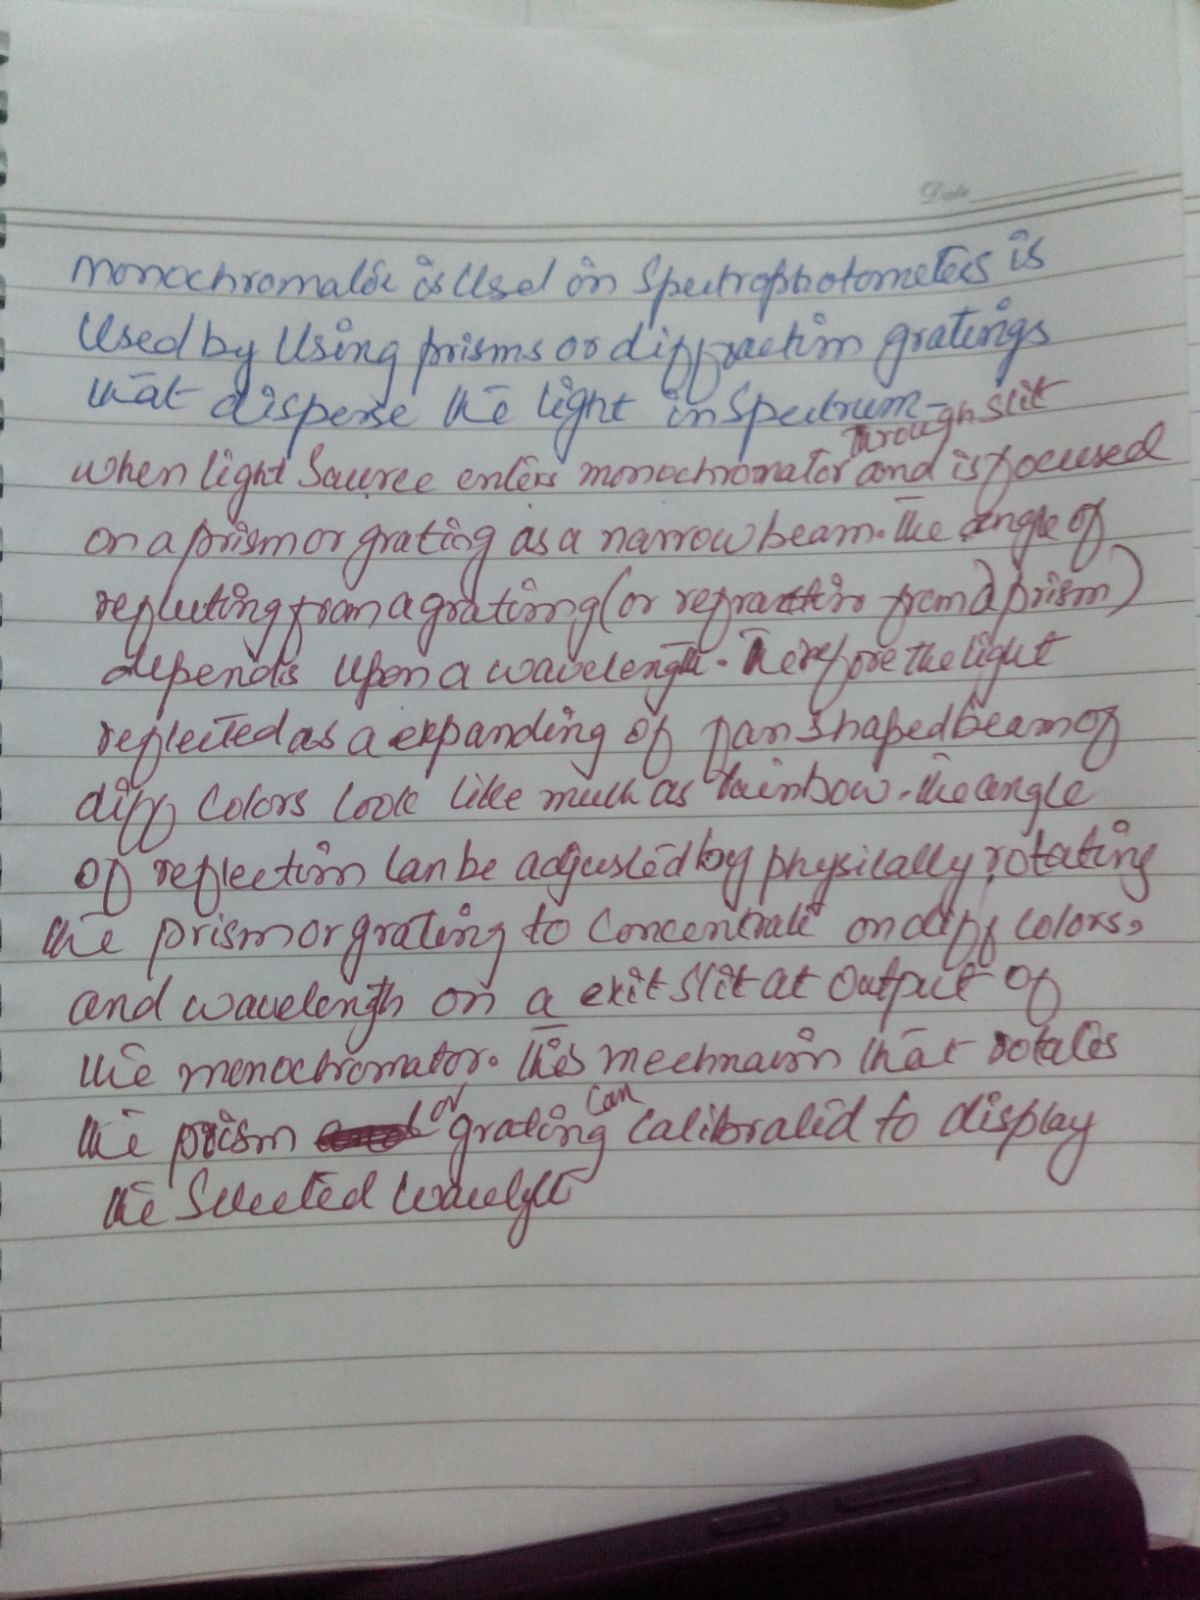 Date
monochromator is Used in Spectrophotometers is
Used by Using prisms or diffraction gratings
that disperse the light in Spectrum-
through slit
when light Source enters monochromator and is focused
on a prism or grating as a narrow beam. The angle of
reflecting from a grating (or refraction from a prism)
depends upon a wavelength. Therefore the light
reflected as a expanding of fan shaped beam of
diff colors look like much as rainbow. the angle
of reflection can be adjusted by physically rotating
the prism or grating to concentrate on diff colors,
and wavelength on a exit slit at output of
the monochromator. this that rotates
the prism or grating can calibrated to display
the Selected